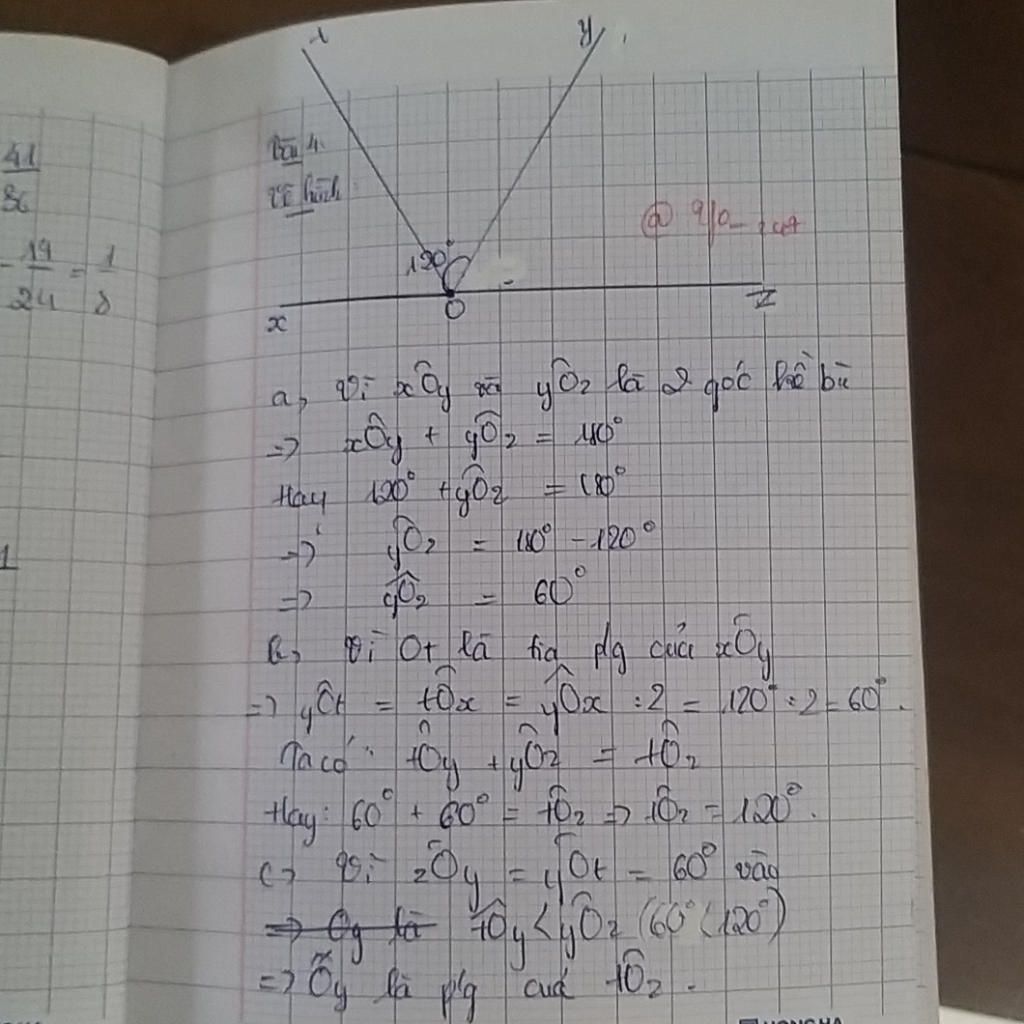 41
36
- 19/24 = 1/8
1
t
y
Bài 4.
Vẽ hình:
120°
x
O
z
a, Vì xÔy và yÔz là 2 góc kề bù
=> xÔy + yÔz = 180°
Hay 120° + yÔz = 180°
=> yÔz = 180° - 120°
=> yÔz = 60°
b, Vì Ot là tia p/g của xÔy
=> yÔt = tÔx = yÔx : 2 = 120° : 2 = 60°.
Ta có: tÔy + yÔz = tÔz
Hay: 60° + 60° = tÔz => tÔz = 120°.
c, Vì zÔy = yÔt = 60° và
=> Oy là tÔy < yÔz (60° < 120°)
=> Ôy là p/g của tÔz.
HONG HA